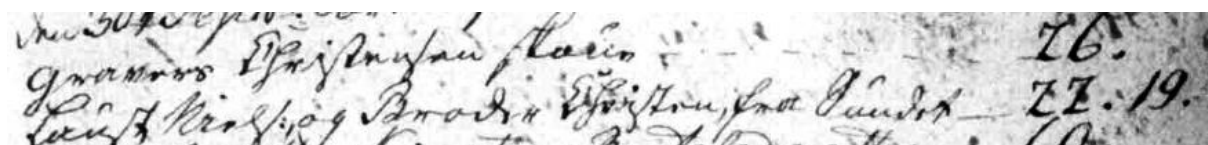 den 30 Septbr:
Gravers Christensen skour 26.
Laust Niels: og Broder Christen, fra Sundet 22. 19.